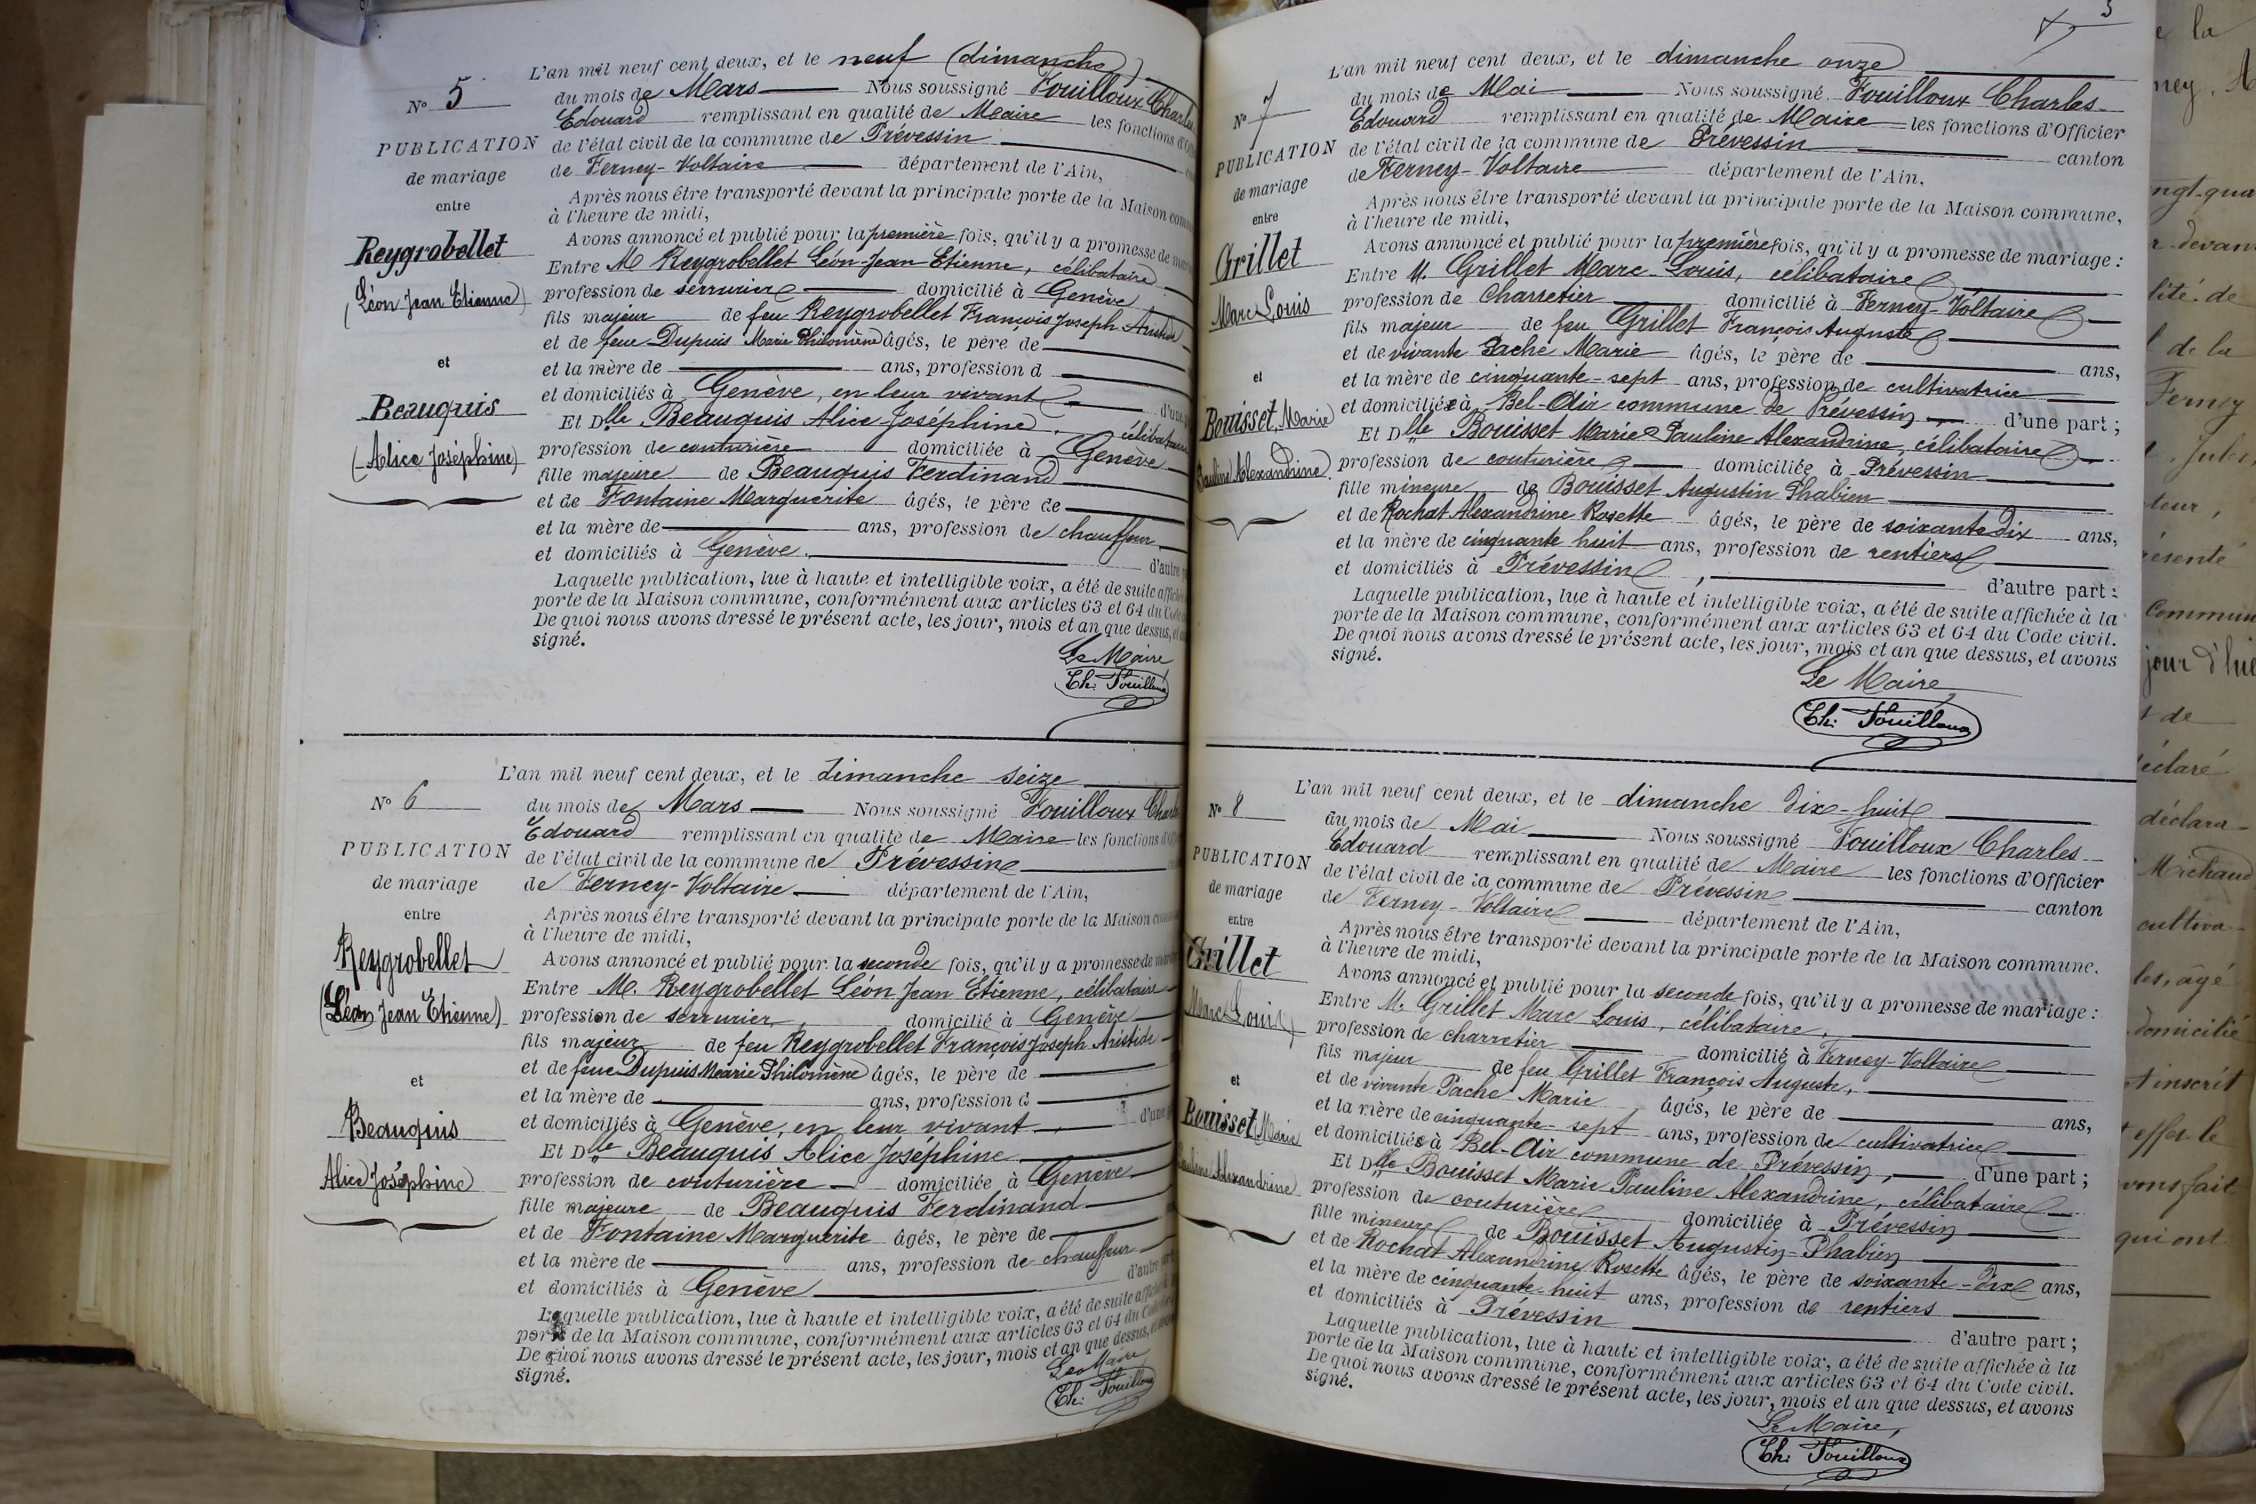 L'an mil neuf cent deux, et le neuf (dimanche)
N° 5
du mois de Mars Nous soussigné Fouilloux Charles
Edouard remplissant en qualité de Maire les fonctions
PUBLICATION
de l'état civil de la commune de Prévessin
de mariage
de Ferney-Voltaire département de l'Ain,
entre
Après nous être transporté devant la principale porte de la Maison
à l'heure de midi,
Reygrobellet
Avons annoncé et publié pour la première fois, qu'il y a promesse de
Entre M Reygrobellet Léon-Jean-Etienne, célibataire
(Léon Jean Etienne)
profession de serrurier domicilié à Genève
fils majeur de feu Reygrobellet François Joseph Aristide
et de feue Dupuis Marie Philomène âgés, le père de
et
et la mère de ans, profession d
et domiciliés à Genève, en leur vivant
Beauquis
Et Dlle Beauquis Alice Joséphine, célibataire
(Alice Joséphine)
profession de couturière domiciliée à Genève
fille majeure de Beauquis Ferdinand
et de Fontaine Marguerite âgés, le père de
et la mère de ans, profession de chauffeur
et domiciliés à Genève
d'autre
Laquelle publication, lue à haute et intelligible voix, a été de suite
porte de la Maison commune, conformément aux articles 63 et 64 du Code
De quoi nous avons dressé le présent acte, les jour, mois et an que dessus,
signé.
Le Maire
Ch: Fouilloux
L'an mil neuf cent deux, et le dimanche seize
N° 6
du mois de Mars Nous soussigné Fouilloux
Edouard remplissant en qualité de Maire les fonctions
PUBLICATION
de l'état civil de la commune de Prévessin
de mariage
de Ferney-Voltaire département de l'Ain,
entre
Après nous être transporté devant la principale porte de la Maison
à l'heure de midi,
Reygrobellet
Avons annoncé et publié pour la seconde fois, qu'il y a promesse de
Entre M. Reygrobellet Léon Jean Etienne, célibataire
(Léon Jean Etienne)
profession de serrurier, domicilié à Genève
fils majeur de feu Reygrobellet François Joseph Aristide
et de feue Dupuis Marie Philomène âgés, le père de
et
et la mère de ans, profession d
et domiciliés à Genève, en leur vivant
Beauquis
Et Dlle Beauquis Alice Joséphine
Alice Joséphine
profession de couturière domiciliée à Genève
fille majeure de Beauquis Ferdinand
et de Fontaine Marguerite âgés, le père de
et la mère de ans, profession de chauffeur
et domiciliés à Genève d'autre
Laquelle publication, lue à haute et intelligible voix, a été de suite
porte de la Maison commune, conformément aux articles 63 et 64 du
De quoi nous avons dressé le présent acte, les jour, mois et an que dessus,
signé.
Le Maire
Ch: Fouilloux
3
L'an mil neuf cent deux, et le dimanche onze
N° 7
du mois de Mai Nous soussigné Fouilloux Charles
Edouard remplissant en qualité de Maire les fonctions d'Officier
PUBLICATION
de l'état civil de la commune de Prévessin canton
de mariage
de Ferney-Voltaire département de l'Ain,
entre
Après nous être transporté devant la principale porte de la Maison commune,
à l'heure de midi,
Grillet
Avons annoncé et publié pour la première fois, qu'il y a promesse de mariage :
Entre M. Grillet Marc-Louis, célibataire
Marc Louis
profession de charretier domicilié à Ferney-Voltaire
fils majeur de feu Grillet François Auguste
et de vivante Pache Marie âgés, le père de ans,
et
et la mère de cinquante-sept ans, profession de cultivatrice
et domiciliés à Bel-Air commune de Prévessin d'une part ;
Bouisset Marie
Et Dlle Bouisset Marie Pauline Alexandrine, célibataire
Pauline Alexandrine
profession de couturière domiciliée à Prévessin
fille mineure de Bouisset Augustin Phabien
et de Rochat Alexandrine Rosette âgés, le père de soixante dix ans,
et la mère de cinquante huit ans, profession de rentiers
et domiciliés à Prévessin, d'autre part :
Laquelle publication, lue à haute et intelligible voix, a été de suite affichée à la
porte de la Maison commune, conformément aux articles 63 et 64 du Code civil.
De quoi nous avons dressé le présent acte, les jour, mois et an que dessus, et avons
signé.
Le Maire,
Ch: Fouilloux
L'an mil neuf cent deux, et le dimanche dix-huit
N° 8
du mois de Mai Nous soussigné Fouilloux Charles
Edouard remplissant en qualité de Maire les fonctions d'Officier
PUBLICATION
de l'état civil de la commune de Prévessin canton
de mariage
de Ferney-Voltaire département de l'Ain,
entre
Après nous être transporté devant la principale porte de la Maison commune,
à l'heure de midi,
Grillet
Avons annoncé et publié pour la seconde fois, qu'il y a promesse de mariage :
Marc Louis
Entre M. Grillet Marc Louis, célibataire,
profession de charretier domicilié à Ferney-Voltaire
fils majeur de feu Grillet François Auguste,
et
et de vivante Pache Marie âgés, le père de ans,
et la mère de cinquante-sept ans, profession de cultivatrice
Bouisset Marie
et domiciliés à Bel-Air commune de Prévessin, d'une part ;
Pauline Alexandrine
Et Dlle Bouisset Marie Pauline Alexandrine, célibataire
profession de couturière domiciliée à Prévessin
fille mineure de Bouisset Augustin-Phabien
et de Rochat Alexandrine Rosette âgés, le père de soixante-dix ans,
et la mère de cinquante-huit ans, profession de rentiers
et domiciliés à Prévessin d'autre part ;
Laquelle publication, lue à haute et intelligible voix, a été de suite affichée à la
porte de la Maison commune, conformément aux articles 63 et 64 du Code civil.
De quoi nous avons dressé le présent acte, les jour, mois et an que dessus, et avons
signé.
Le Maire,
Ch: Fouilloux